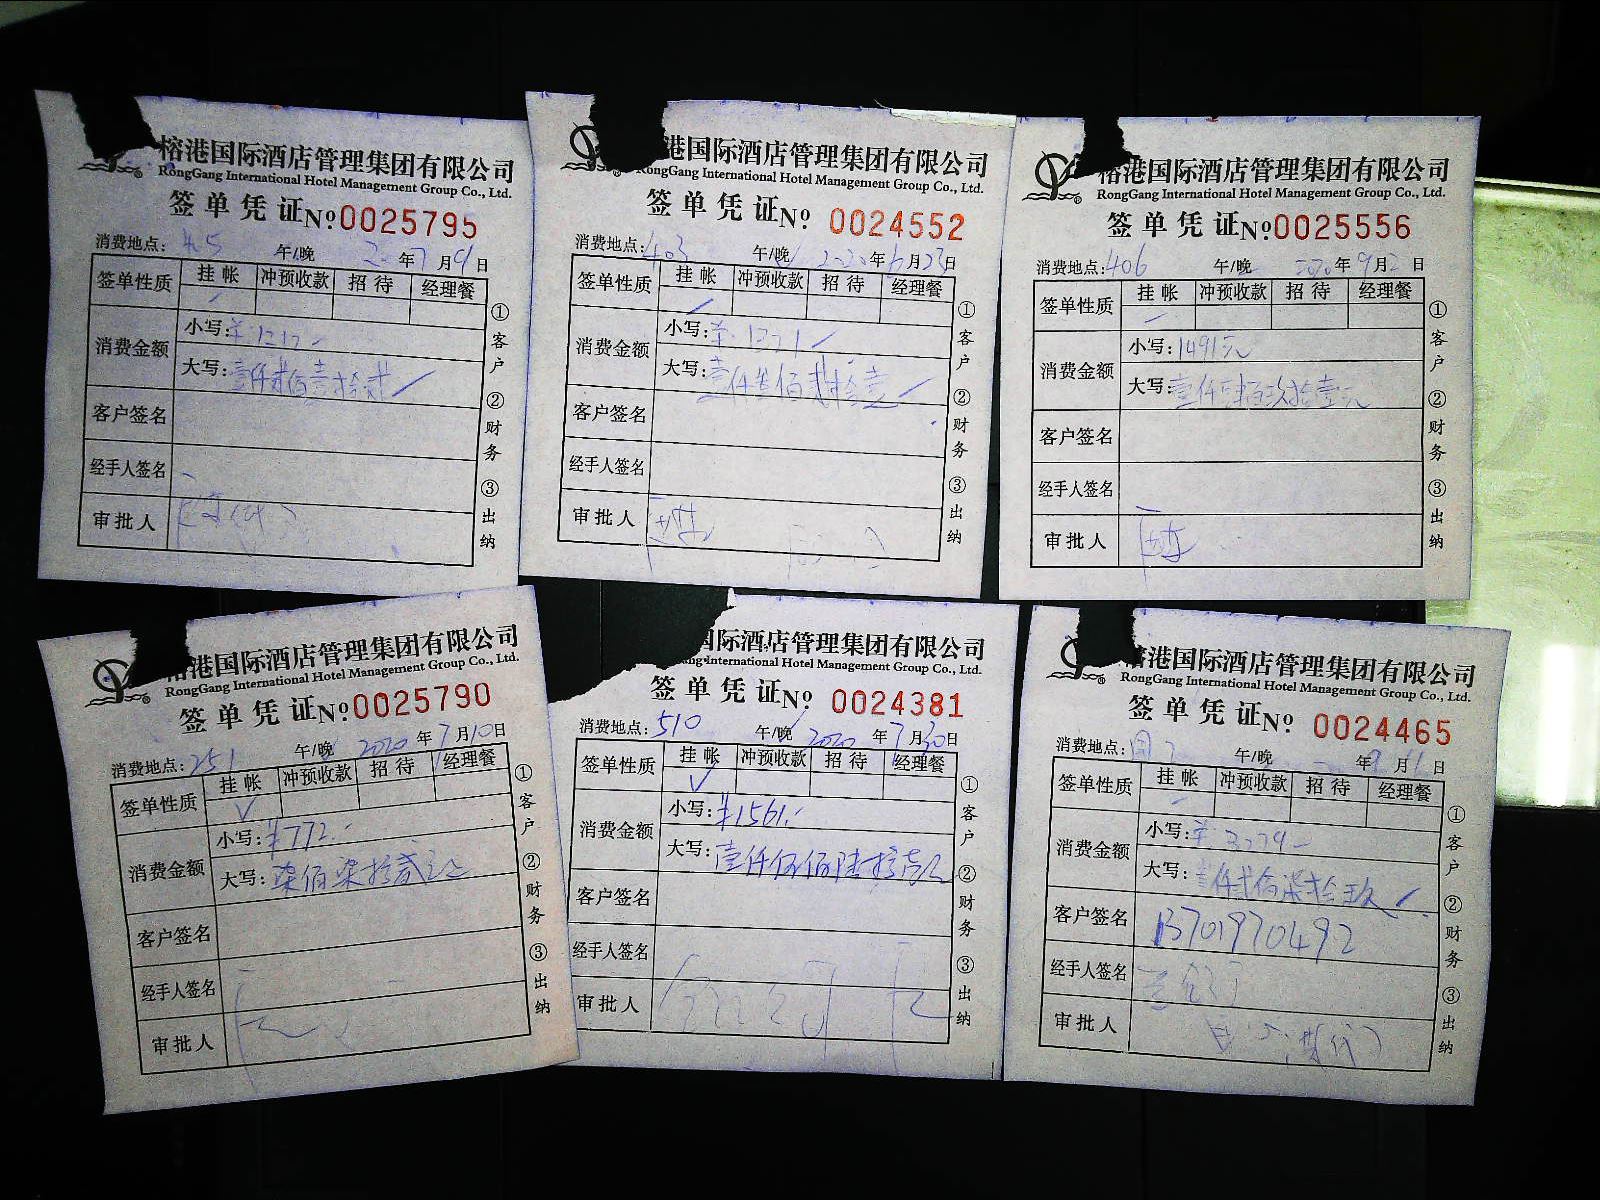 榕港国际酒店管理集团有限公司
RongGang International Hotel Management Group Co., Ltd.
签单凭证 №0025795
消费地点: 午/晚 年7月9日
签单性质 挂帐 冲预收款 招待 经理餐
消费金额 小写:
大写:壹仟贰佰壹拾贰
客户签名
经手人签名
审批人
①客户 ②财务 ③出纳
港国际酒店管理集团有限公司
RongGang International Hotel Management Group Co., Ltd.
签单凭证 № 0024552
消费地点:403 午/晚 2020年 月23日
签单性质 挂帐 冲预收款 招待 经理餐
消费金额 小写:
大写:
客户签名
经手人签名
审批人
①客户 ②财务 ③出纳
榕港国际酒店管理集团有限公司
RongGang International Hotel Management Group Co., Ltd.
签单凭证 №0025556
消费地点:406 午/晚 2020年9月2日
签单性质 挂帐 冲预收款 招待 经理餐
消费金额 小写:1491元
大写:壹仟肆佰玖拾壹元
客户签名
经手人签名
审批人
①客户 ②财务 ③出纳
榕港国际酒店管理集团有限公司
RongGang International Hotel Management Group Co., Ltd.
签单凭证 №0025790
消费地点:251 午/晚 2020年7月10日
签单性质 挂帐 冲预收款 招待 经理餐
✓
消费金额 小写:¥772.-
大写:柒佰柒拾贰元
客户签名
经手人签名
审批人
①客户 ②财务 ③出纳
国际酒店管理集团有限公司
International Hotel Management Group Co., Ltd.
签单凭证 № 0024381
消费地点:510 午/晚 2020年7月30日
签单性质 挂帐 冲预收款 招待 经理餐
✓
消费金额 小写:¥1561.-
大写:壹仟伍佰陆拾壹元
客户签名
经手人签名
审批人
①客户 ②财务 ③出纳
榕港国际酒店管理集团有限公司
RongGang International Hotel Management Group Co., Ltd.
签单凭证 № 0024465
消费地点: 午/晚 年9月1日
签单性质 挂帐 冲预收款 招待 经理餐
消费金额 小写:
大写:仟贰佰柒拾玖
客户签名 13701970492
经手人签名
审批人
①客户 ②财务 ③出纳